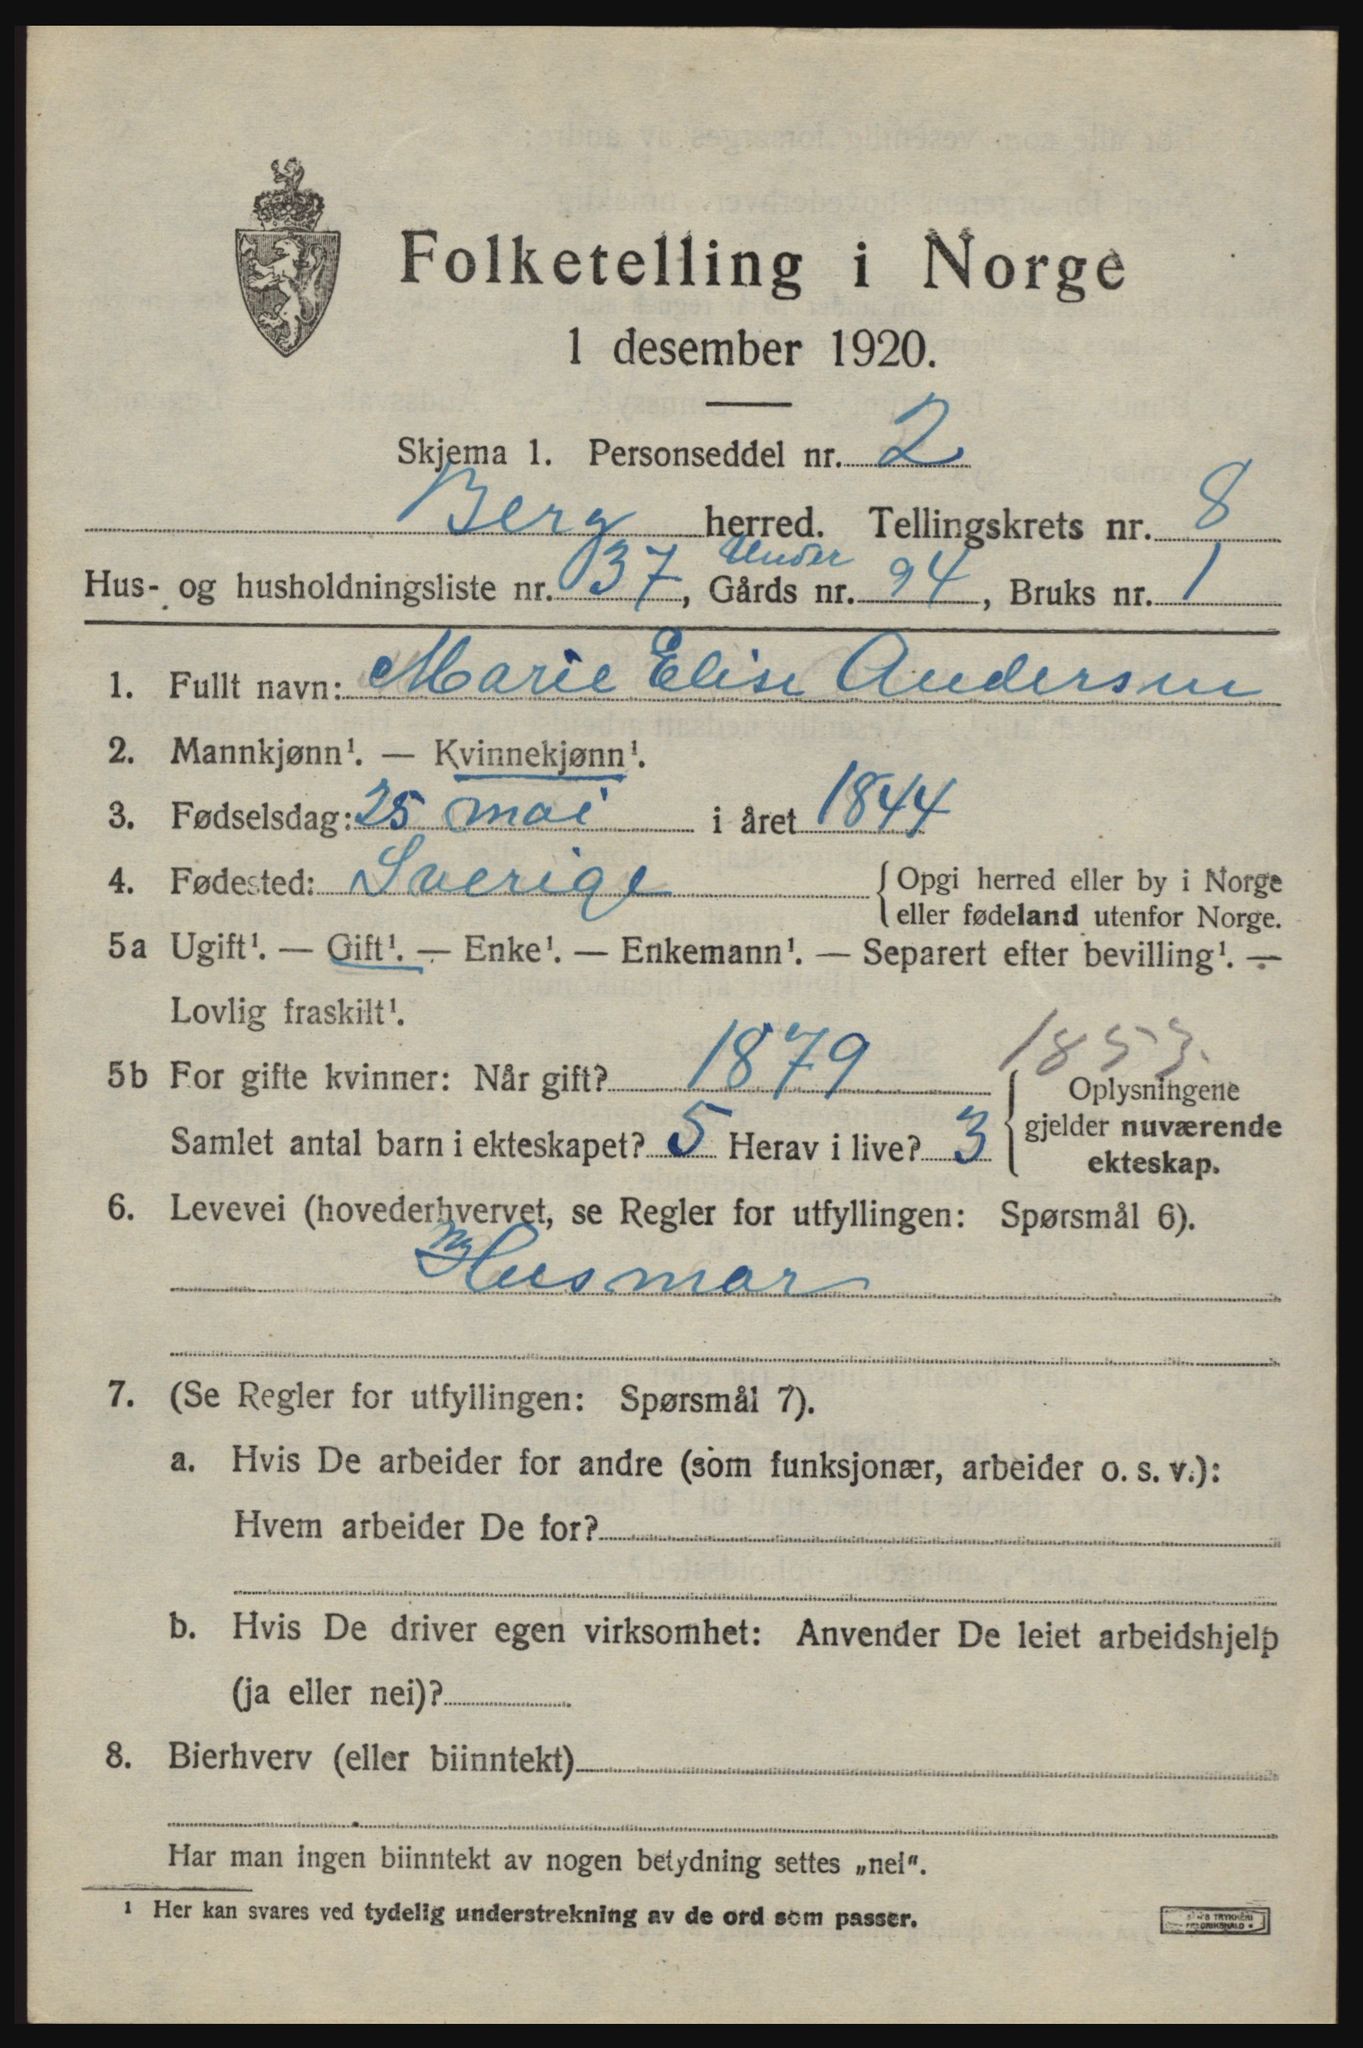 Folketelling i Norge
1 desember 1920.
Skjema 1. Personseddel nr. 2
Berg herred. Tellingskrets nr. 8
Under
Hus- og husholdningsliste nr. 37, Gårds nr. 94, Bruks nr. 1
1. Fullt navn: Marie Elise Andersen
2. Mannkjønn¹. — Kvinnekjønn¹.
3. Fødselsdag: 25 mai i året 1844
4. Fødested: Sverige { Opgi herred eller by i Norge
eller fødeland utenfor Norge.
5a Ugift¹. — Gift¹. — Enke¹. — Enkemann¹. — Separert efter bevilling¹. —
Lovlig fraskilt¹.
1853.
5b For gifte kvinner: Når gift? 1879 { Oplysningene
gjelder nuværende
ekteskap.
Samlet antal barn i ekteskapet? 5 Herav i live? 3
6. Levevei (hovederhvervet, se Regler for utfyllingen: Spørsmål 6).
Husmor
7. (Se Regler for utfyllingen: Spørsmål 7).
a. Hvis De arbeider for andre (som funksjonær, arbeider o. s. v.):
Hvem arbeider De for?
b. Hvis De driver egen virksomhet: Anvender De leiet arbeidshjelp
(ja eller nei)?
8. Bierhverv (eller biinntekt)
Har man ingen biinntekt av nogen betydning settes „nei".
¹ Her kan svares ved tydelig understrekning av de ord som passer.
TRYKKERI
FREDRIKSHALD